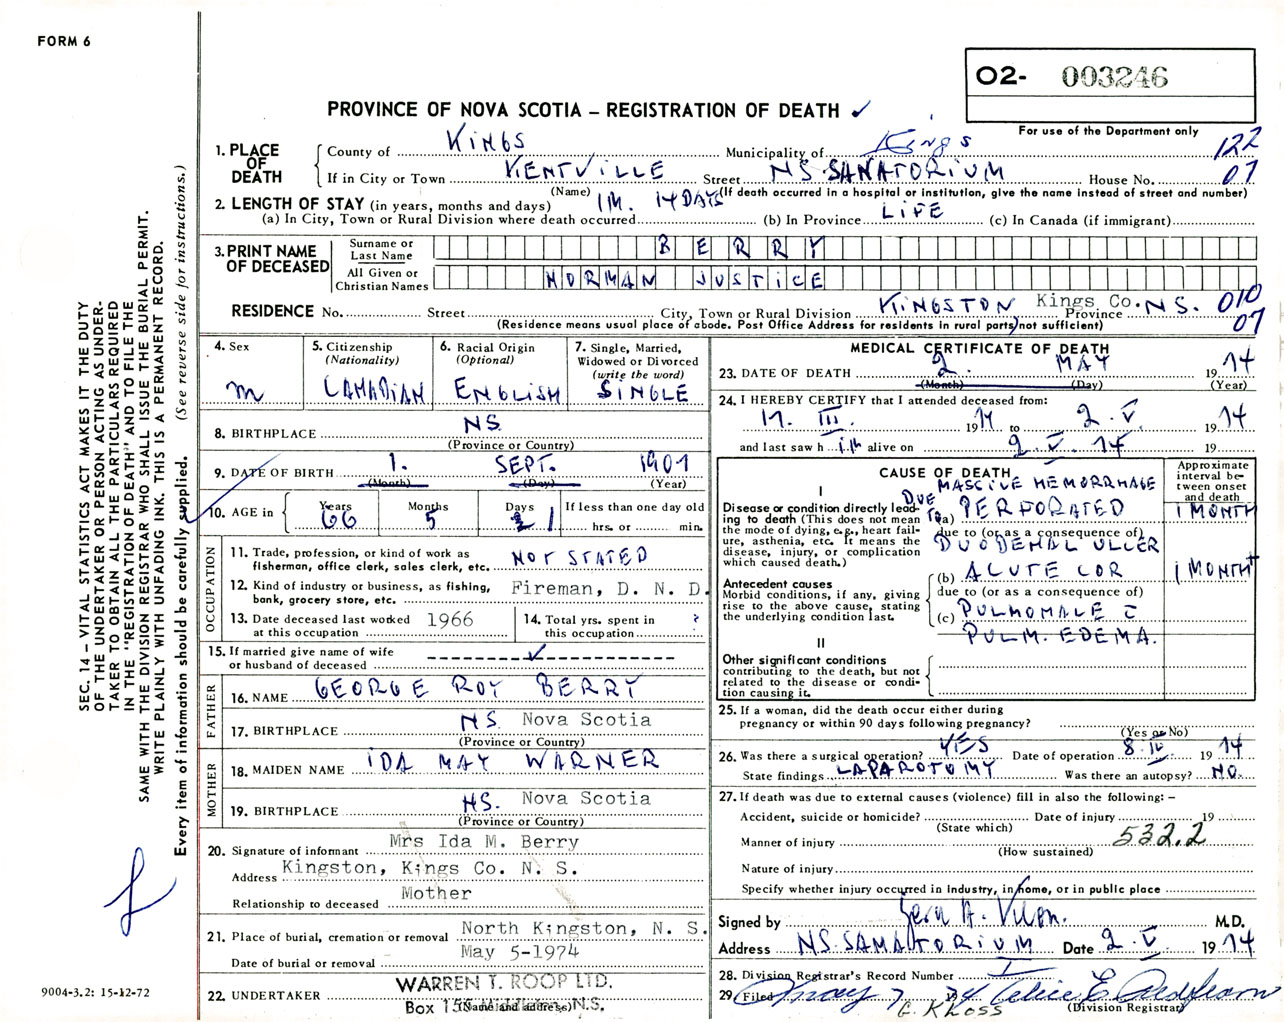 FORM 6
O2- 003246
PROVINCE OF NOVA SCOTIA – REGISTRATION OF DEATH ✓
For use of the Department only
1. PLACE OF DEATH
County of KINGS Municipality of Kings 122
If in City or Town KENTVILLE Street NS. SANATORIUM House No. 07
(Name) (If death occurred in a hospital or institution, give the name instead of street and number)
2. LENGTH OF STAY (in years, months and days) 1M. 14 DAYS
(a) In City, Town or Rural Division where death occurred (b) In Province LIFE (c) In Canada (if immigrant)
3. PRINT NAME OF DECEASED
Surname or Last Name BERRY
All Given or Christian Names NORMAN JUSTICE
RESIDENCE No. Street City, Town or Rural Division KINGSTON Kings Co. Province N.S. 010
(Residence means usual place of abode. Post Office Address for residents in rural parts, not sufficient) 07
4. Sex M
5. Citizenship (Nationality) CANADIAN
6. Racial Origin (Optional) ENGLISH
7. Single, Married, Widowed or Divorced (write the word) SINGLE
8. BIRTHPLACE NS.
(Province or Country)
9. DATE OF BIRTH 1. SEPT. 1907
(Month) (Day) (Year)
10. AGE in Years 66 Months 5 Days 21 If less than one day old
hrs. or min.
OCCUPATION
11. Trade, profession, or kind of work as fisherman, office clerk, sales clerk, etc. NOT STATED
12. Kind of industry or business, as fishing, bank, grocery store, etc. Fireman, D. N. D.
13. Date deceased last worked at this occupation 1966
14. Total yrs. spent in this occupation ?
15. If married give name of wife or husband of deceased ✓
FATHER
16. NAME GEORGE ROY BERRY
17. BIRTHPLACE NS. Nova Scotia
(Province or Country)
MOTHER
18. MAIDEN NAME IDA MAY WARNER
19. BIRTHPLACE NS. Nova Scotia
(Province or Country)
20. Signature of informant Mrs Ida M. Berry
Address Kingston, Kings Co. N. S.
Relationship to deceased Mother
21. Place of burial, cremation or removal North Kingston, N. S.
Date of burial or removal May 5-1974
22. UNDERTAKER WARREN T. ROOP LTD.
Box 158 Middleton, N.S.
(Name and address)
MEDICAL CERTIFICATE OF DEATH
23. DATE OF DEATH 2. MAY 1974
(Month) (Day) (Year)
24. I HEREBY CERTIFY that I attended deceased from:
19. III. 1974 to 2. V. 1974
and last saw him alive on 2. V. 74 19
CAUSE OF DEATH
Approximate interval between onset and death
I
Disease or condition directly leading to death (This does not mean the mode of dying, e.g., heart failure, asthenia, etc. It means the disease, injury, or complication which caused death.)
MASSIVE HEMORRHAGE
DUE TO (a) PERFORATED 1 MONTH
due to (or as a consequence of)
DUODENAL ULCER
Antecedent causes
Morbid conditions, if any, giving rise to the above cause, stating the underlying condition last.
(b) ACUTE COR 1 MONTH
due to (or as a consequence of)
(c) PULMONALE c̄
PULM. EDEMA.
II
Other significant conditions contributing to the death, but not related to the disease or condition causing it.
25. If a woman, did the death occur either during pregnancy or within 90 days following pregnancy?
(Yes or No)
26. Was there a surgical operation? YES Date of operation 8. IV 1974
State findings LAPAROTOMY Was there an autopsy? NO.
27. If death was due to external causes (violence) fill in also the following: –
Accident, suicide or homicide? Date of injury 19
(State which)
Manner of injury 532.2
(How sustained)
Nature of injury
Specify whether injury occurred in industry, in home, or in public place
Signed by M.D.
Address NS. SANATORIUM Date 2. V. 1974
28. Division Registrar's Record Number
29. Filed May 7 1974 Alice E.
G. Kloss (Division Registrar)
SEC. 14 – VITAL STATISTICS ACT MAKES IT THE DUTY
OF THE UNDERTAKER OR PERSON ACTING AS UNDER-
TAKER TO OBTAIN ALL THE PARTICULARS REQUIRED
IN THE "REGISTRATION OF DEATH" AND TO FILE THE
SAME WITH THE DIVISION REGISTRAR WHO SHALL ISSUE THE BURIAL PERMIT.
WRITE PLAINLY WITH UNFADING INK. THIS IS A PERMANENT RECORD.
Every item of information should be carefully supplied. (See reverse side for instructions.)
9004-3.2: 15-12-72